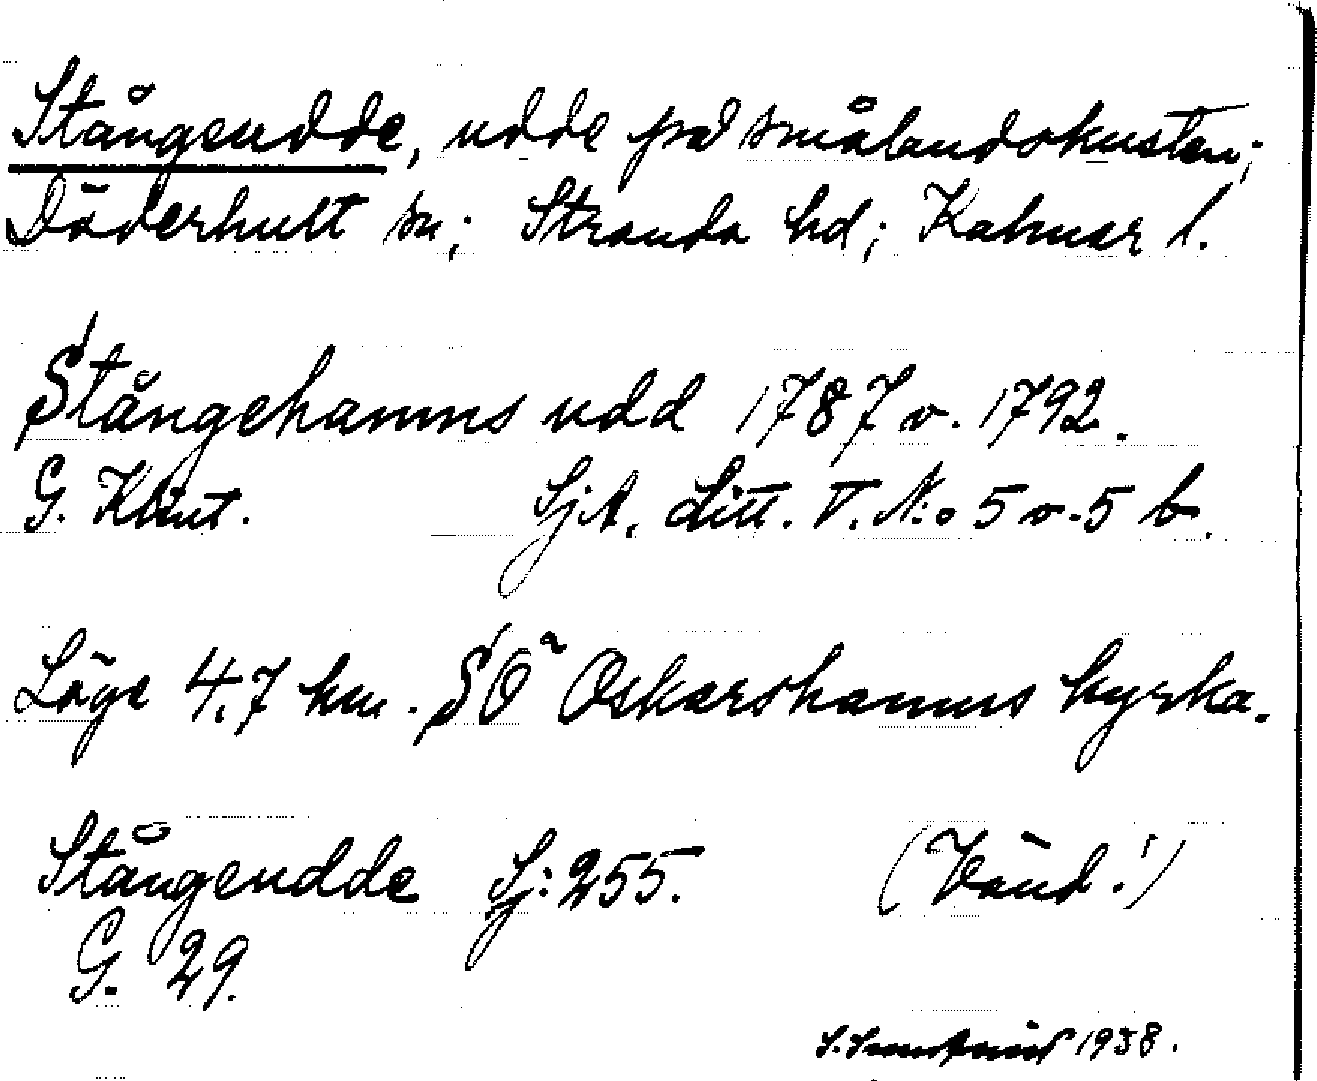 Stångeudde, udde på smålandskusten;
Döderhult sn; Stranda hd; Kalmar l.
Stångehamns udd 1787 o. 1792.
G. Klint. SjA. Litt. V. N:o 5 o. 5 b.
Läge 4,7 km. SÖ Oskarshamns kyrka.
Stångeudde Sj: 255. (Vänd!)
G. 29.
1938.